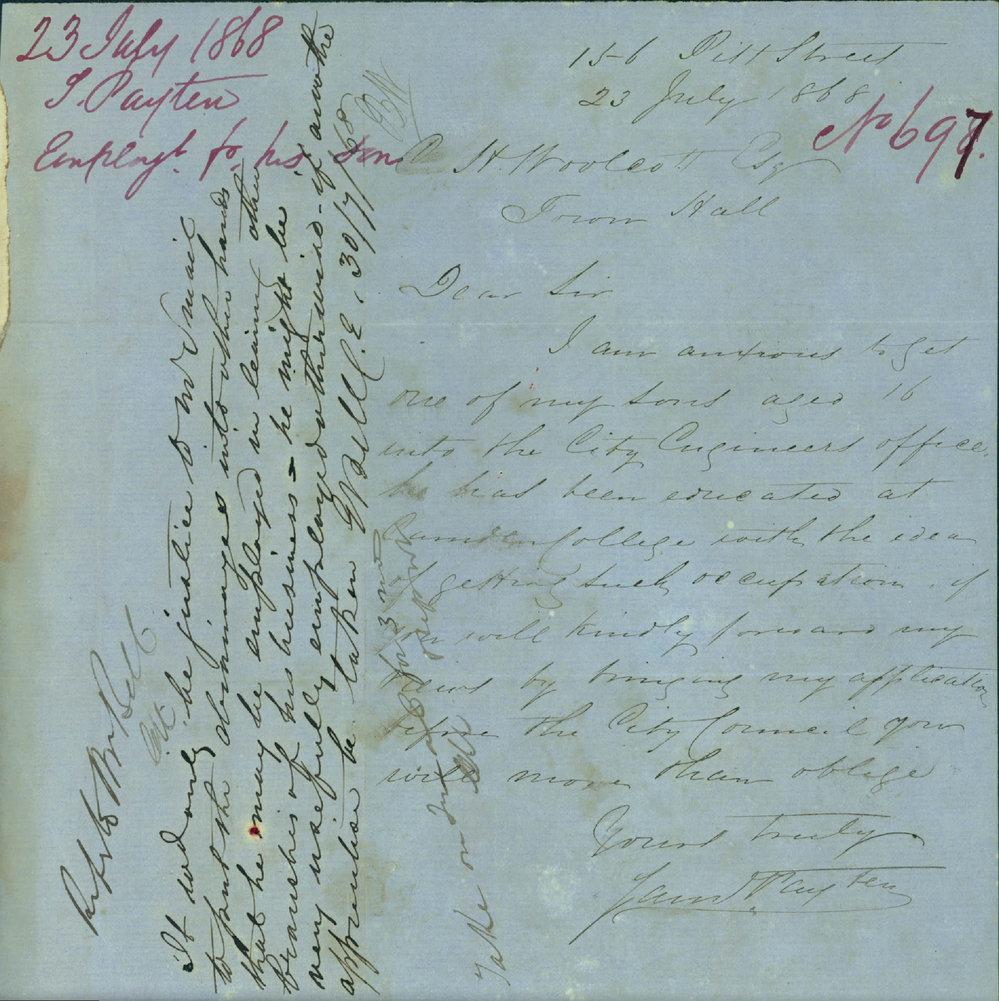 23 July 1868
J. Payten
Employt. for his Son
No 697.
156 Pitt Street
23 July 1868
C. H. Woolcott Esq
Town Hall
Dear Sir
I am anxious to get
one of my sons aged 16
into the City Engineers office,
he has been educated at
Camden College with the idea
of getting such occupation, if
you will kindly forward my
views by bringing my application
before the City Council you
will more than oblige
Yours truly
Payten
It wd only be justice to Mr Mail
to put the drawings into other hands
that he may be employed in learning other
branches of his business – he might be
very usefully employed otherwise – if another
apprentice be taken
E Bell C.E. 30/7/68
Refer to Mr Bell
Take on for 3 mo